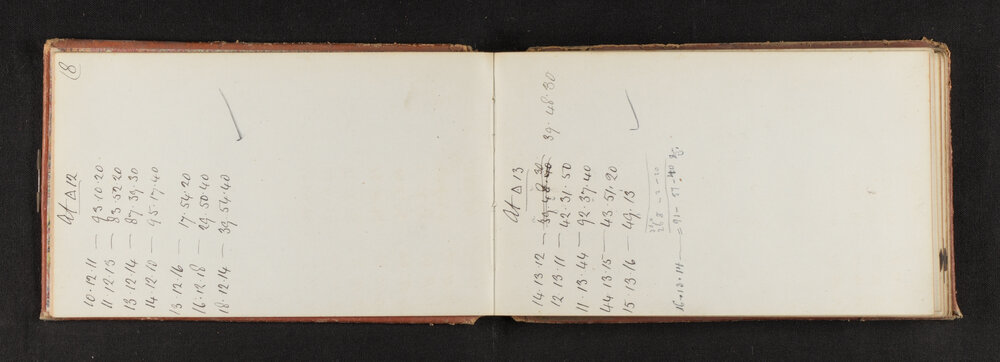 8
At △ 12
10.12.11 — 93.10.20
11.12.13 — 83.52.20
13.12.14 — 87.39.30
14.12.10 — 95.17.40
13.12.16 — 17.54.20
16.12.18 — 29.50.40
18.12.14 — 39.54.40
At △ 13
14.13.12 — 39.48.30 39.48.30
12.13.11 — 42.31.50
11.13.44 — 92.37.40
44.13.15 — 43.51.20
15.13.16 — 49.13
16.13.14 — = 91 - 57 - 40